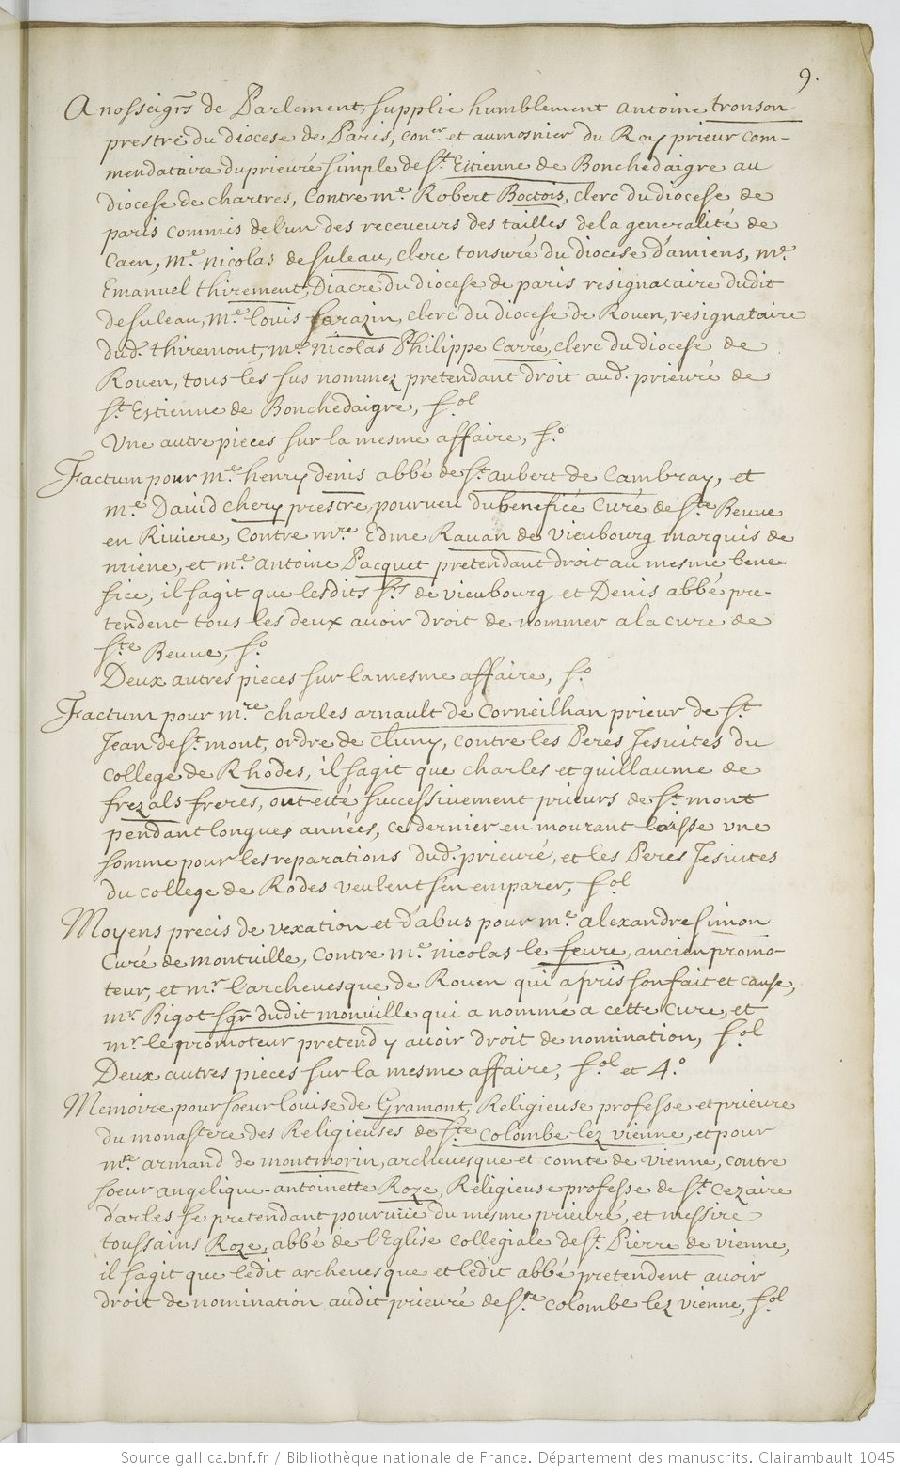 9.
A nosseigrs de Parlement, supplie humblement antoine tronson
prestre du diocese de Paris, coner et aumosnier du Roy prieur com-
mendataire du prieuré simple de St. Estienne de Bonchedaigre au
diocese de chartres, Contre me. Robert Boctois, clerc du diocese de
paris commis de l'un des receveurs des tailles de la generalité de
Caen, me. nicolas de suleau, clerc tonsuré du diocese d'amiens, me.
Emanuel thiremont, Diacre du diocese de paris resignataire dudit
de suleau, me. louis serazin, clerc du diocese de Rouen, resignataire
dud. thiremont, me. nicolas Philippe Carré, clerc du diocese de
Rouen, tous les sus nommez pretendant droit aud. prieuré de
St. Estienne de Bonchedaigre, fol
Une autre pieces sur la mesme affaire, fo
Factum pour me. henry denis abbé de St. aubert de Cambray, et
me. David chery prestre, pourveu du benefice Curé de Ste Beuve
en Riviere, Contre mre. Edme Ravan de vieubourg marquis de
miene, et me. antoine Pacquet pretendant droit au mesme bene
fice, il s'agit que lesdits srs de vieubourg et Denis abbé pre-
tendent tous les deux avoir droit de nommer a la cure de
Ste Beuve, fo
Deux autres pieces sur la mesme affaire, fo
Factum pour mre charles arnault de Corneilhan prieur de St
Jean de St. mont, ordre de Cluny, contre les Peres Jesuites du
college de Rhodes, il s'agit que charles et guillaume de
frezals freres, ont eité successivement prieurs de St. mont
pendant longues années, ce dernier en mourant laisse une
somme pour les reparations dud. prieuré, et les Peres Jesuites
du college de Rodes veulent s'en emparer, fol
Moyens precis de vexation et d'abus pour me. alexandre simon
Curé de montville, Contre me. nicolas le feure, ancien promo-
teur, et mr. l'archevesque de Rouen qui a pris son fait et cause,
mr. Bigot sgr dudit monville qui a nommé a cette Cure, et
mr. le promoteur pretend y avoir droit de nomination, fol
Deux autres pieces sur la mesme affaire, fol et 4o
Memoire pour soeur louise de Gramont, Religieuse professe et prieure
du monastere des Religieuses de Ste Colombe lez vienne, et pour
mre armand de montmorin, archevesque et comte de vienne, contre
soeur angelique-antoinette Roze, Religieuse professe de St. Cezaire
d'arles se pretendant pourvüe du mesme prieuré, et messire
toussains Roze, abbé de l'Eglise collegiale de St. Pierre de vienne,
il s'agit que ledit archevesque et ledit abbé pretendent avoir
droit de nomination audit prieuré de Ste colombe lez vienne, fol
Source gallica.bnf.fr / Bibliothèque nationale de France. Département des manuscrits. Clairambault 1045